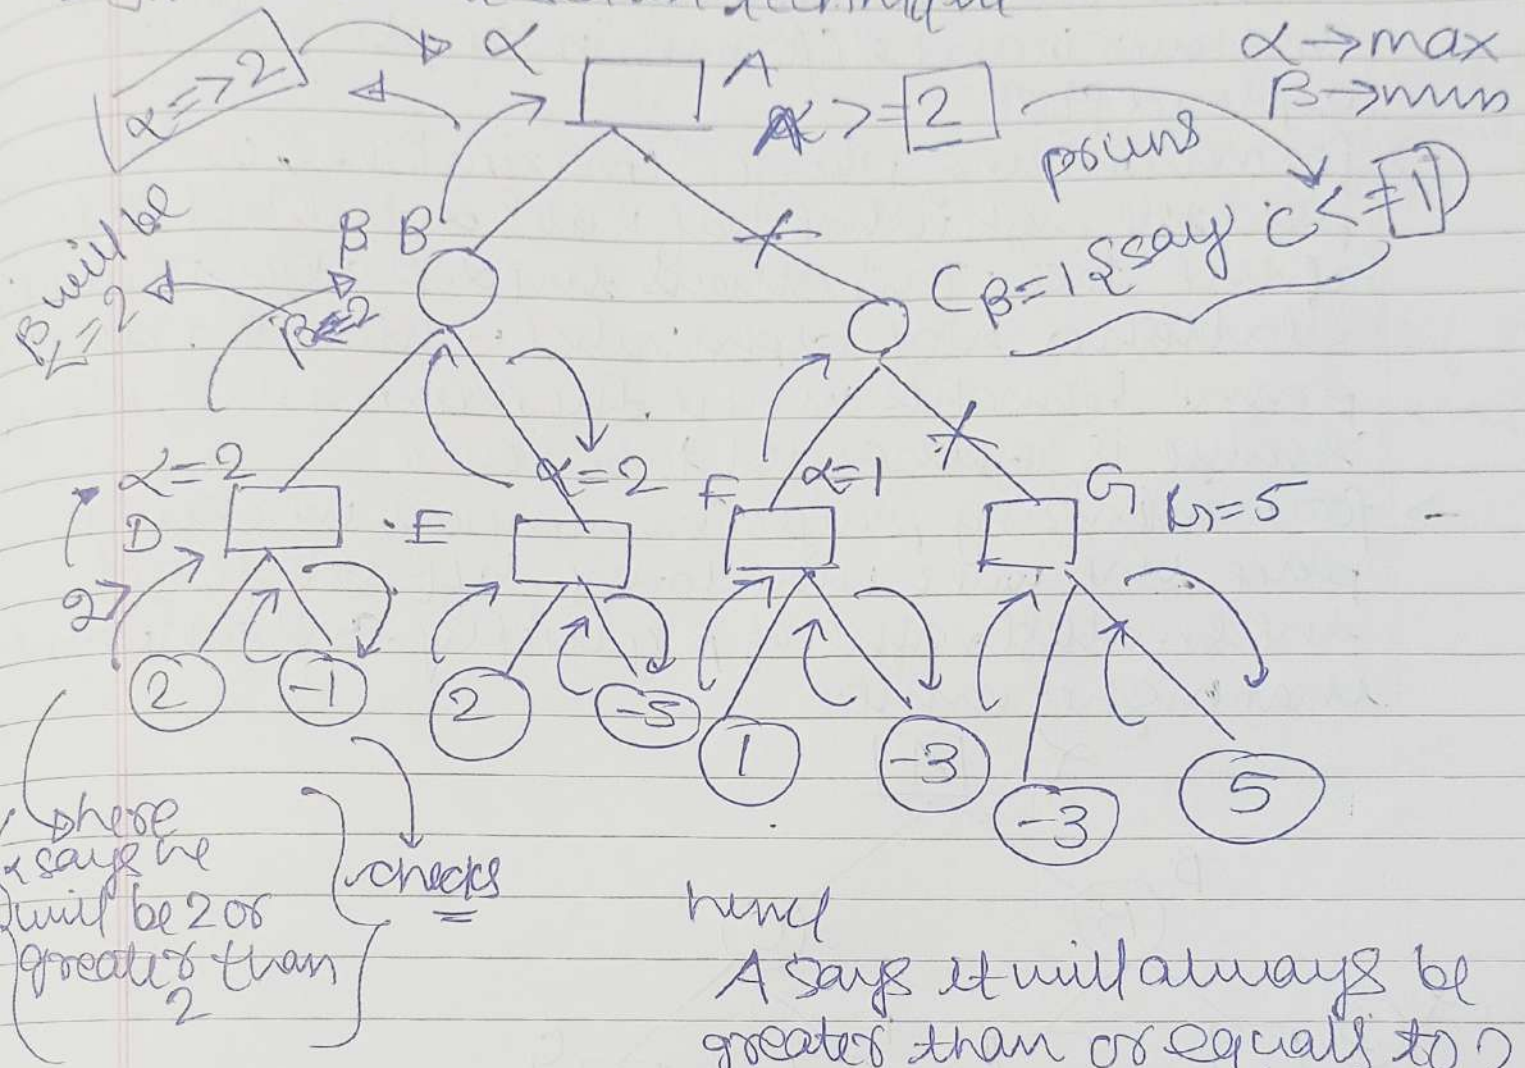 technique
α => 2
α
A
α → max
β → min
>= 2
pruns
β will be
<= 2
β B
β<=2
C β=1 {say C <= 1
α=2
D
E
α=2
F
α=1
G
G=5
2
2
-1
2
-5
1
-3
-3
5
here
α says he
will be 2 or
greater than
2
checks
hence
A says it will always be
greater than or equals to 2